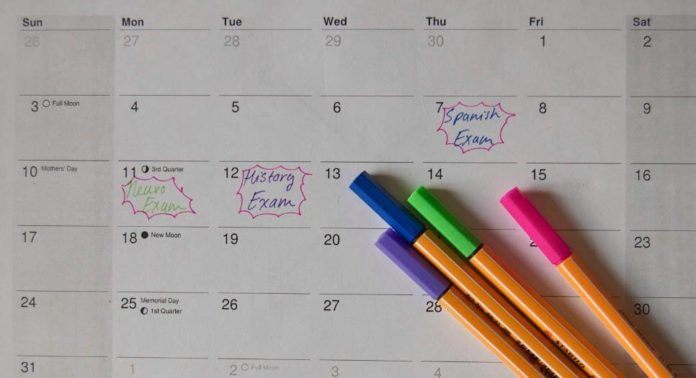 Sun Mon Tue Wed Thu Fri Sat
26 27 28 29 30 1 2
3 Full Moon 4 5 6 7 8 9
Spanish
Exam
10 Mothers' Day 11 3rd Quarter 12 13 14 15 16
Neuro History
Exam Exam
17 18 New Moon 19 20 23
24 25 Memorial Day 26 27 28 30
1st Quarter
31 1 2 Full Moon 3 4